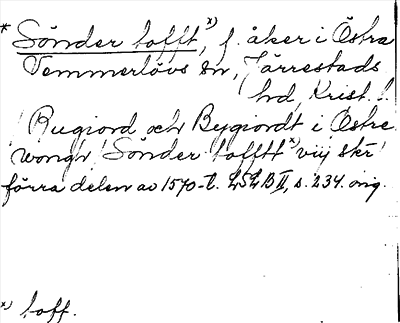 * Sönder tofft, x) f. åker i Östra
Temmerlövs sn, Järrestads
hd, Krist. l.
! Rugiord och Bygiordt i Östre
wongh! Sönder tofftt x) viij skr!
förra delen av 1570-t. LSLB II, s. 234. orig.
x) toff.